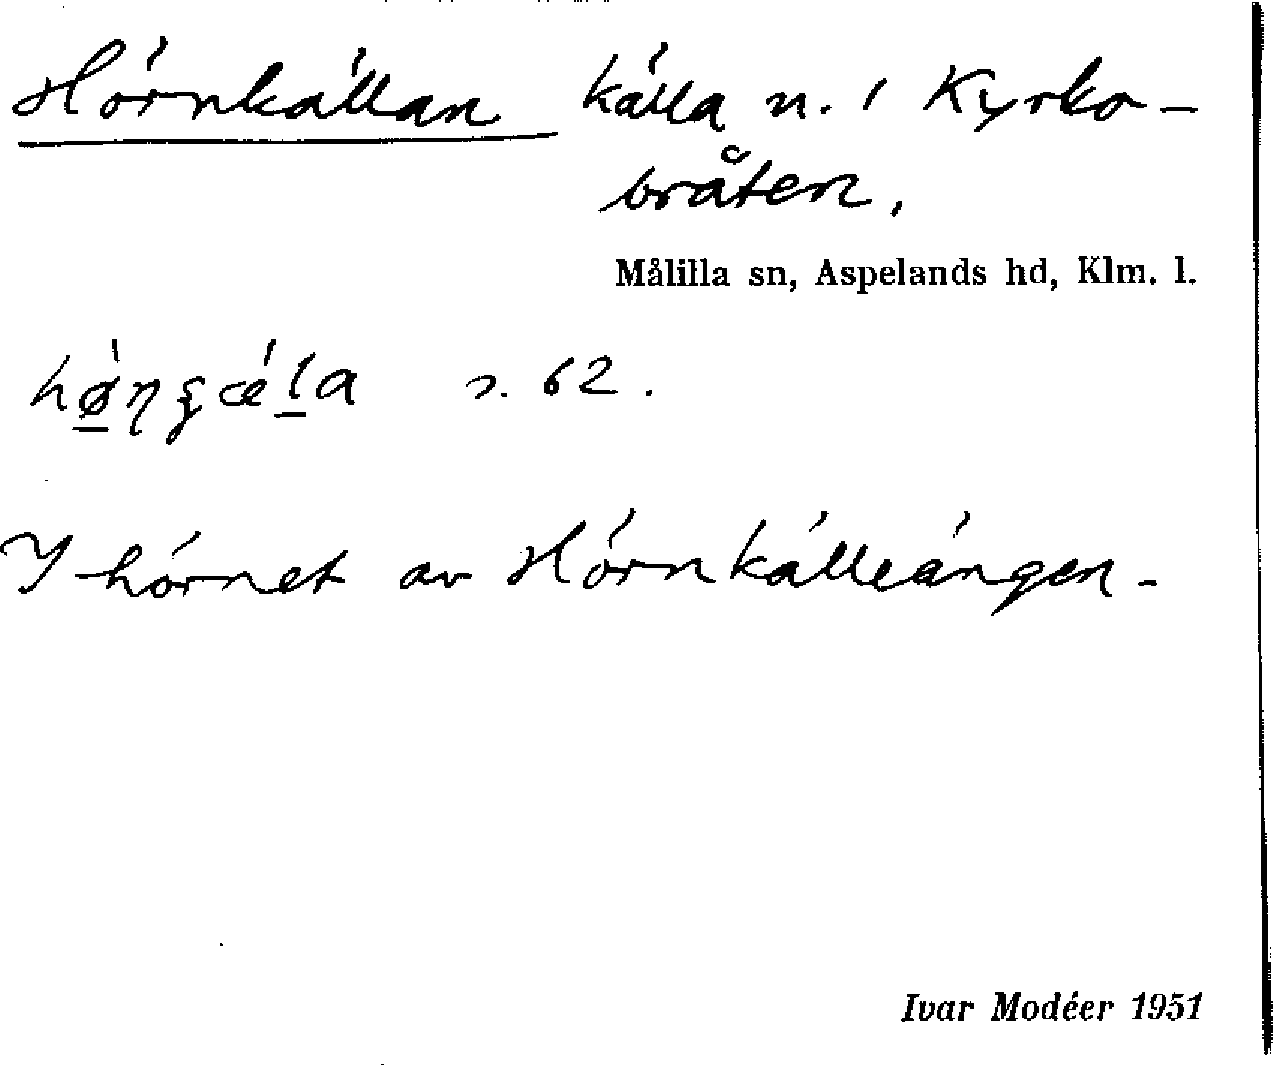 Hörnkällan källa n. i Kyrko-
bråten.
Målilla sn, Aspelands hd, Klm. l.
s. 62.
I hörnet av Hörnkälleängen.
Ivar Modéer 1951